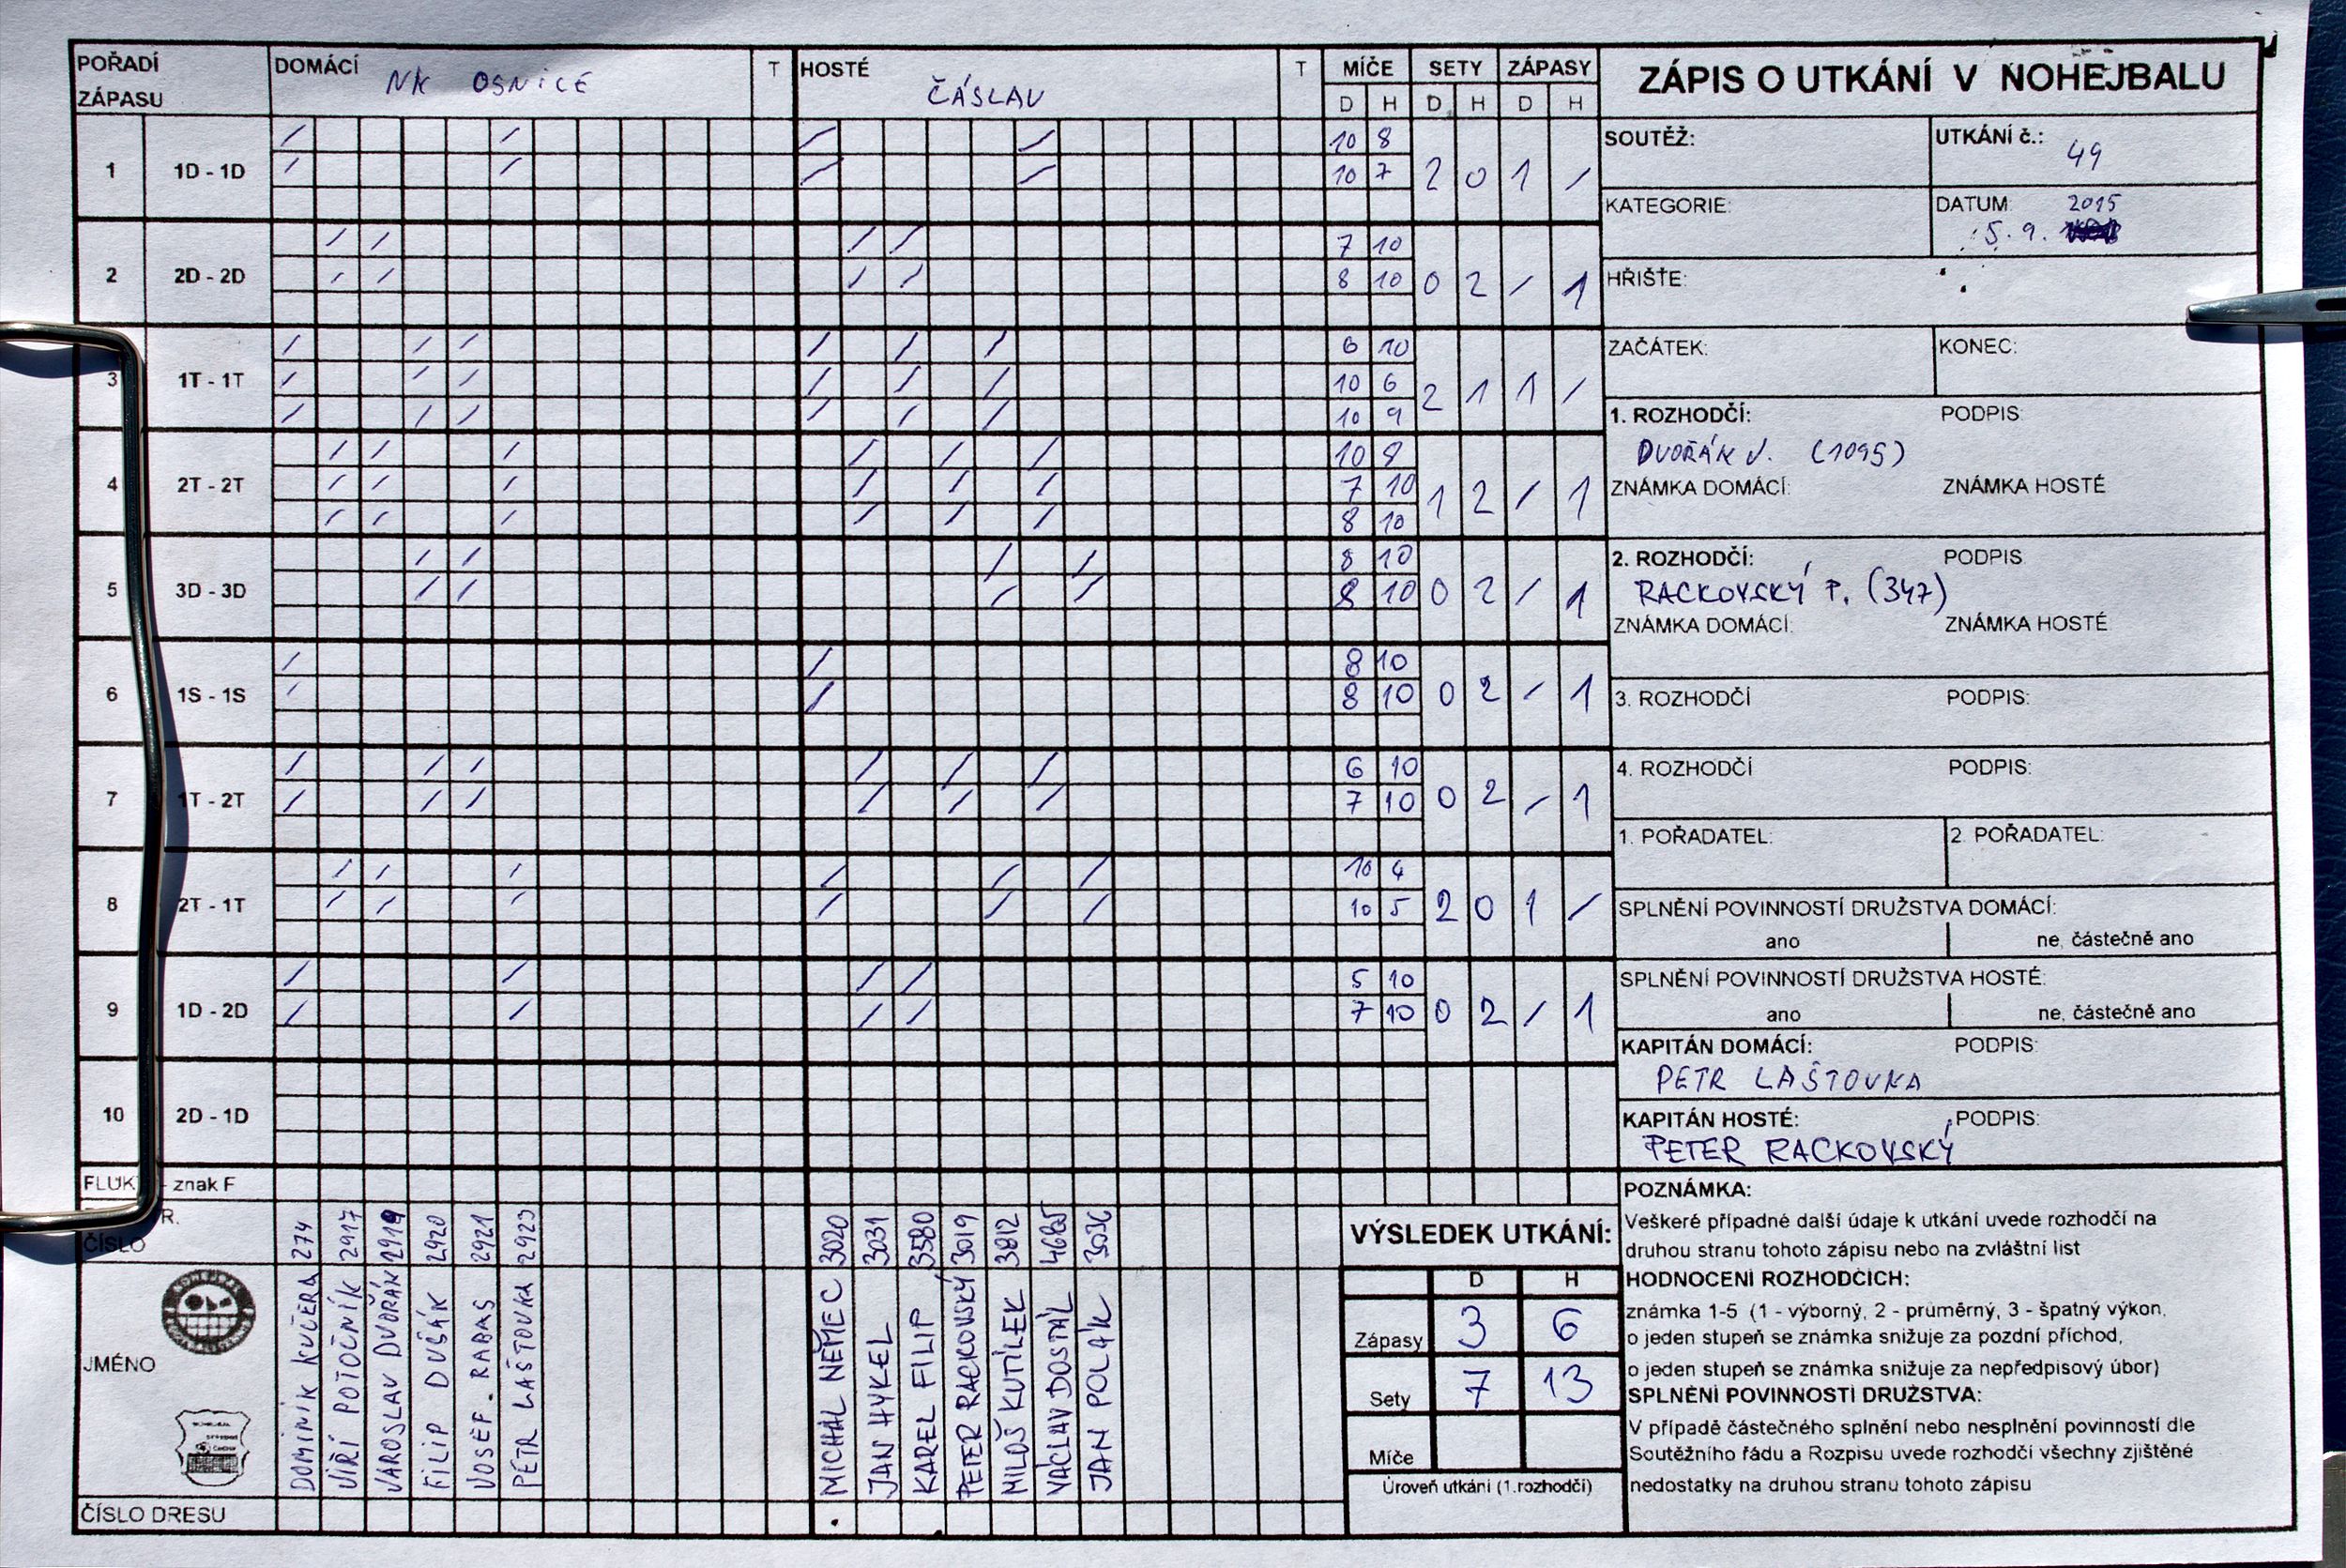 POŘADÍ ZÁPASU DOMÁCÍ NK OSNICE T HOSTÉ ČÁSLAV T MÍČE SETY ZÁPASY
D H D H D H
1 1D - 1D / / / / 10 8
/ / / / 10 7 2 0 1 /
2 2D - 2D / / / / 7 10
/ / / / 8 10 0 2 / 1
3 1T - 1T / / / / / / 6 10
/ / / / / / 10 6 2 1 1 /
/ / / / / / 10 9
4 2T - 2T / / / / / / 10 8
/ / / / / / 7 10 1 2 / 1
/ / / / / / 8 10
5 3D - 3D / / / / 8 10
/ / / / 8 10 0 2 / 1
6 1S - 1S / / 8 10
/ / 8 10 0 2 / 1
7 1T - 2T / / / / / / 6 10
/ / / / / / 7 10 0 2 / 1
8 2T - 1T / / / / / / 10 4
/ / / / / / 10 5 2 0 1 /
9 1D - 2D / / / / 5 10
/ / / / 7 10 0 2 / 1
10 2D - 1D
FLUK - znak F
R.
ČÍSLO
JMÉNO
DOMINIK KUČERA 274
JIŘÍ POTOČNÍK 2917
JAROSLAV DVOŘÁK 2919
FILIP DUŠÁK 2920
JOSEF RABAS 2921
PETR LAŠTOVKA 2923
MICHAL NĚMEC 3020
JAN HYKEL 3031
KAREL FILIP 3580
PETER RACKOVSKÝ 3019
MILOŠ KUTÍLEK 3812
VÁCLAV DOSTÁL 4685
JAN POLÁK 3036
ČÍSLO DRESU
VÝSLEDEK UTKÁNÍ:
D H
Zápasy 3 6
Sety 7 13
Míče
Úroveň utkání (1.rozhodčí)
ZÁPIS O UTKÁNÍ V NOHEJBALU
SOUTĚŽ: UTKÁNÍ č.: 49
KATEGORIE: DATUM 2015
5. 9.
HŘIŠTE:
ZAČÁTEK: KONEC:
1. ROZHODČÍ: PODPIS:
DVOŘÁK J. (1095)
ZNÁMKA DOMÁCÍ: ZNÁMKA HOSTÉ
2. ROZHODČÍ: PODPIS
RACKOVSKÝ P. (347)
ZNÁMKA DOMÁCÍ: ZNÁMKA HOSTÉ
3. ROZHODČÍ PODPIS:
4. ROZHODČÍ PODPIS:
1. POŘADATEL: 2. POŘADATEL:
SPLNĚNÍ POVINNOSTÍ DRUŽSTVA DOMÁCÍ:
ano ne, částečně ano
SPLNĚNÍ POVINNOSTÍ DRUŽSTVA HOSTÉ:
ano ne, částečně ano
KAPITÁN DOMÁCÍ: PODPIS:
PETR LAŠTOVKA
KAPITÁN HOSTÉ: PODPIS:
PETER RACKOVSKÝ
POZNÁMKA:
Veškeré případné další údaje k utkání uvede rozhodčí na
druhou stranu tohoto zápisu nebo na zvláštní list
HODNOCENÍ ROZHODČÍCH:
známka 1-5 (1 - výborný, 2 - průměrný, 3 - špatný výkon,
o jeden stupeň se známka snižuje za pozdní příchod,
o jeden stupeň se známka snižuje za nepředpisový úbor)
SPLNĚNÍ POVINNOSTÍ DRUŽSTVA:
V případě částečného splnění nebo nesplnění povinností dle
Soutěžního řádu a Rozpisu uvede rozhodčí všechny zjištěné
nedostatky na druhou stranu tohoto zápisu